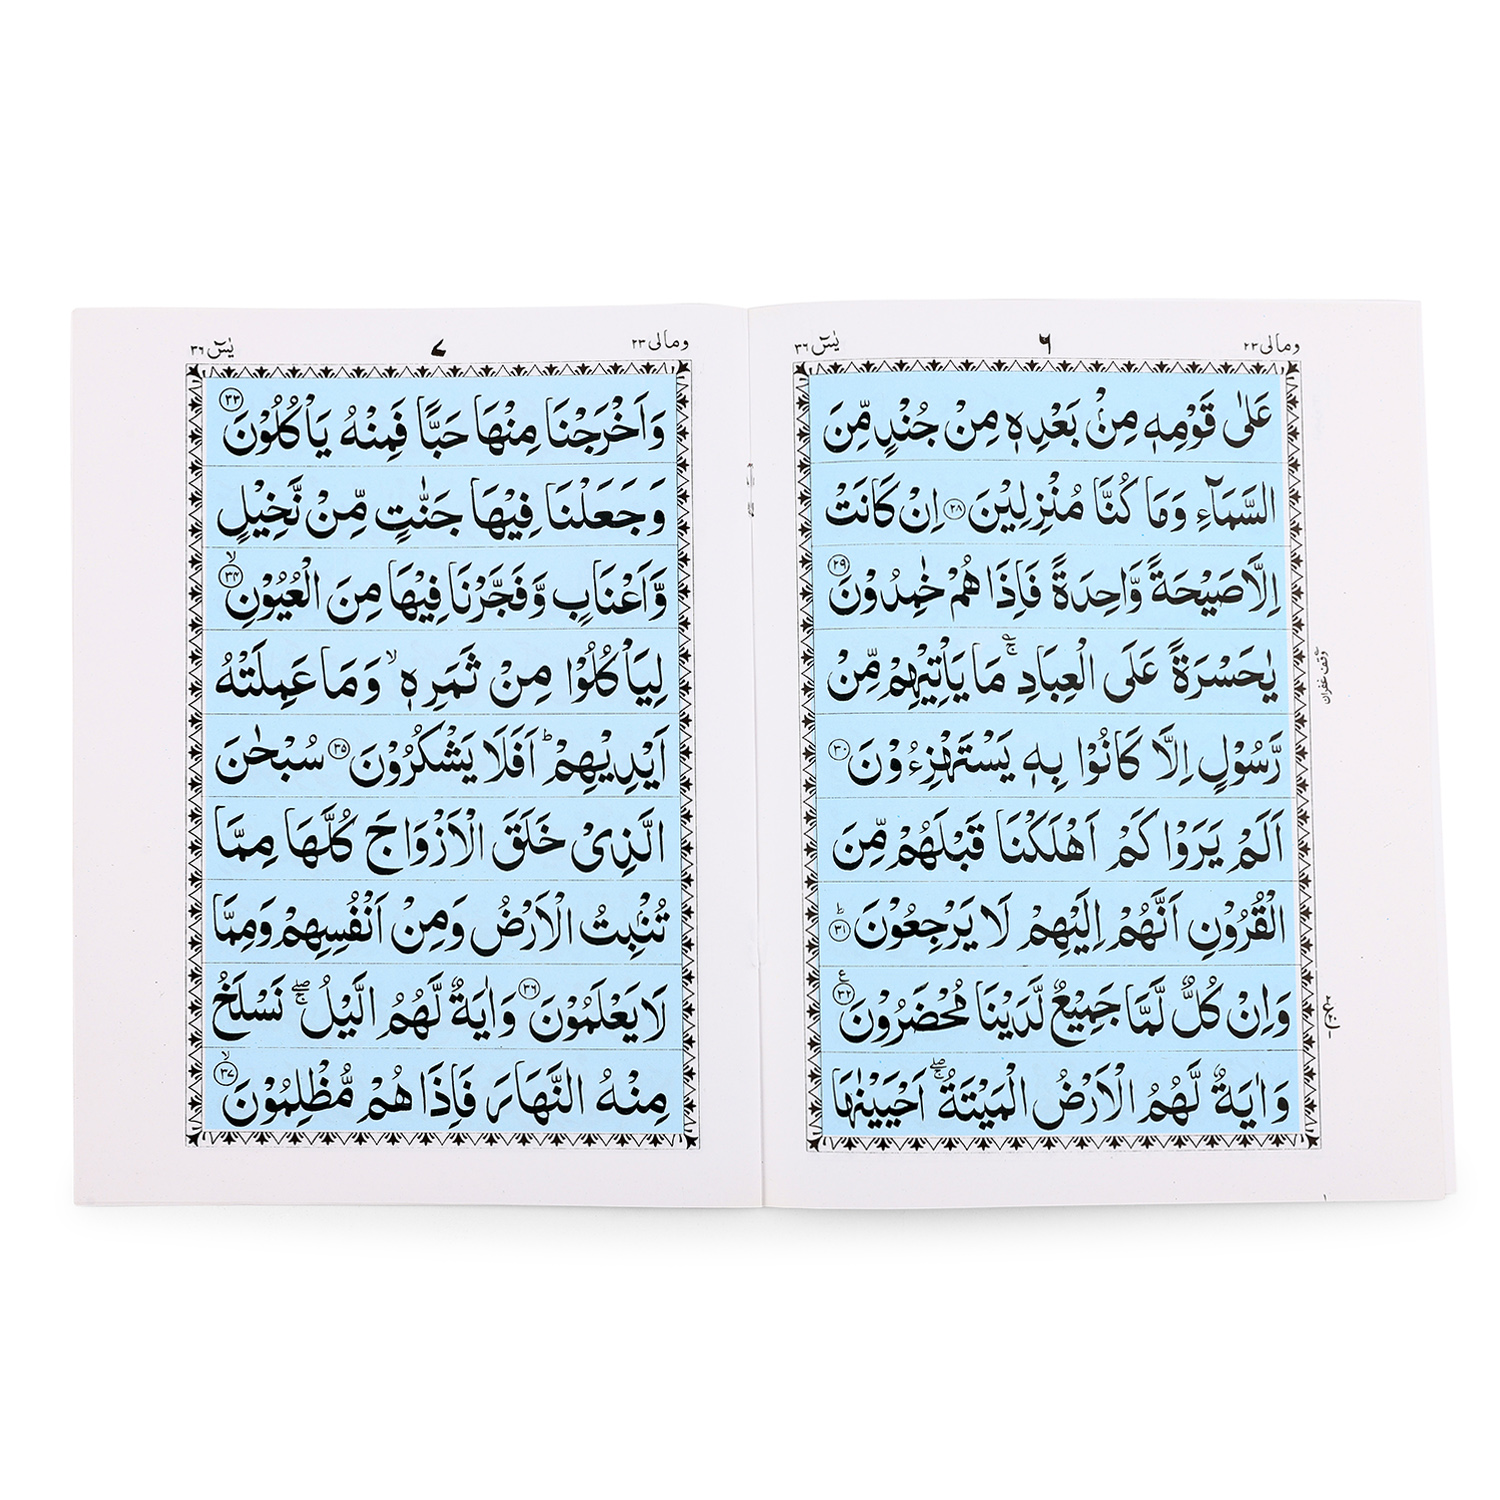 ومالی ۲۳
۶
یٰسٓ ۳۶
عَلٰى قَوْمِهٖ مِنْۢ بَعْدِهٖ مِنْ جُنْدٍ مِّنَ
السَّمَآءِ وَمَا كُنَّا مُنْزِلِيْنَ ۲۸ اِنْ كَانَتْ
اِلَّا صَيْحَةً وَّاحِدَةً فَاِذَا هُمْ خٰمِدُوْنَ ۲۹
يٰحَسْرَةً عَلَى الْعِبَادِ ۚ مَا يَاْتِيْهِمْ مِّنْ
رَّسُوْلٍ اِلَّا كَانُوْا بِهٖ يَسْتَهْزِءُوْنَ ۳۰
اَلَمْ يَرَوْا كَمْ اَهْلَكْنَا قَبْلَهُمْ مِّنَ
الْقُرُوْنِ اَنَّهُمْ اِلَيْهِمْ لَا يَرْجِعُوْنَ ؕ ۳۱
وَاِنْ كُلٌّ لَّمَّا جَمِيْعٌ لَّدَيْنَا مُحْضَرُوْنَ ۳۲ ع
وَاٰيَةٌ لَّهُمُ الْاَرْضُ الْمَيْتَةُ ۖۚ اَحْيَيْنٰهَا
وقف غفران
ومالی ۲۳
۷
یٰسٓ ۳۶
وَاَخْرَجْنَا مِنْهَا حَبًّا فَمِنْهُ يَاْكُلُوْنَ ۳۳
وَجَعَلْنَا فِيْهَا جَنّٰتٍ مِّنْ نَّخِيْلٍ
وَّاَعْنَابٍ وَّفَجَّرْنَا فِيْهَا مِنَ الْعُيُوْنِ ۙ ۳۴
لِيَاْكُلُوْا مِنْ ثَمَرِهٖ ۙ وَمَا عَمِلَتْهُ
اَيْدِيْهِمْ ؕ اَفَلَا يَشْكُرُوْنَ ۳۵ سُبْحٰنَ
الَّذِىْ خَلَقَ الْاَزْوَاجَ كُلَّهَا مِمَّا
تُنْۢبِتُ الْاَرْضُ وَمِنْ اَنْفُسِهِمْ وَمِمَّا
لَا يَعْلَمُوْنَ ۳۶ وَاٰيَةٌ لَّهُمُ الَّيْلُ ۖۚ نَسْلَخُ
مِنْهُ النَّهَارَ فَاِذَا هُمْ مُّظْلِمُوْنَ ۙ ۳۷